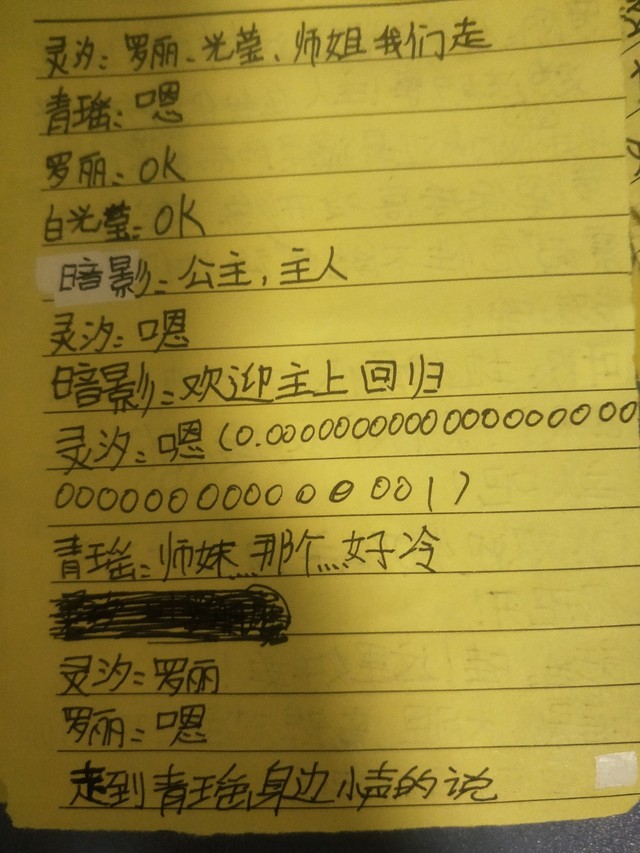 灵汐：罗丽、光莹、师姐我们走
青瑶：嗯
罗丽：OK
白光莹：OK
暗影：公主，主人
灵汐：嗯
暗影：欢迎主上回归
灵汐：嗯（0.000000000000000000
00000000000000001）
青瑶：师妹…那个…好冷
灵汐：罗丽
罗丽：嗯
走到青瑶身边小声的说